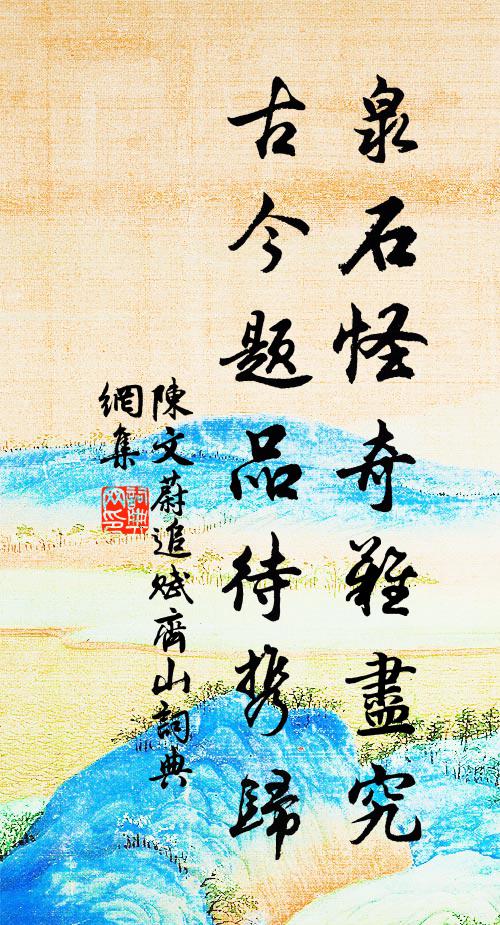 泉石怪奇難盡究
古今題品待携歸
陳文蔚追賦齊山詞典
網集
詞典網印